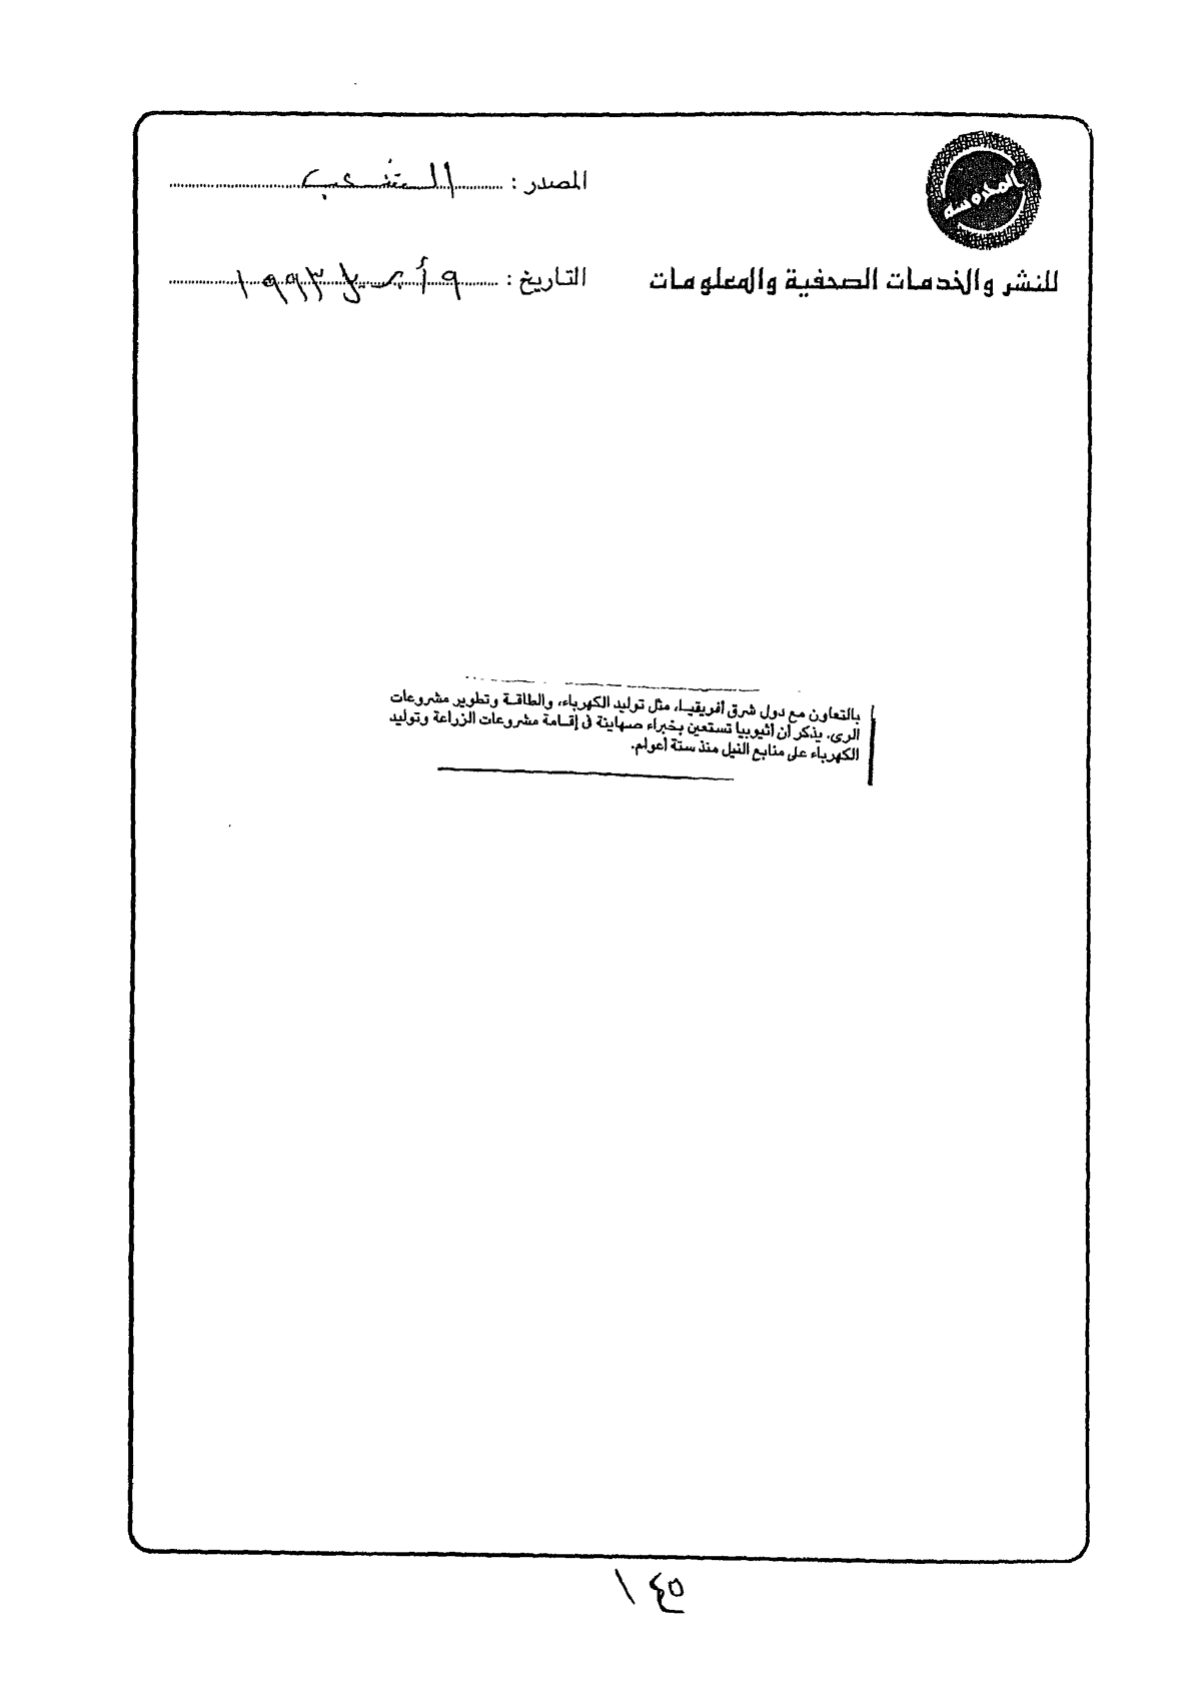 المحروسه
للنشر والخدمات الصحفية والمعلومات
المصدر : الشعب
التاريخ : ٩ أبريل ١٩٩٣
بالتعاون مع دول شرق أفريقيا، مثل توليد الكهرباء، والطاقة وتطوير مشروعات
الرى. يذكر أن أثيوبيا تستعين بخبراء صهاينة فى إقامة مشروعات الزراعة وتوليد
الكهرباء على منابع النيل منذ ستة أعوام.
١٤٥